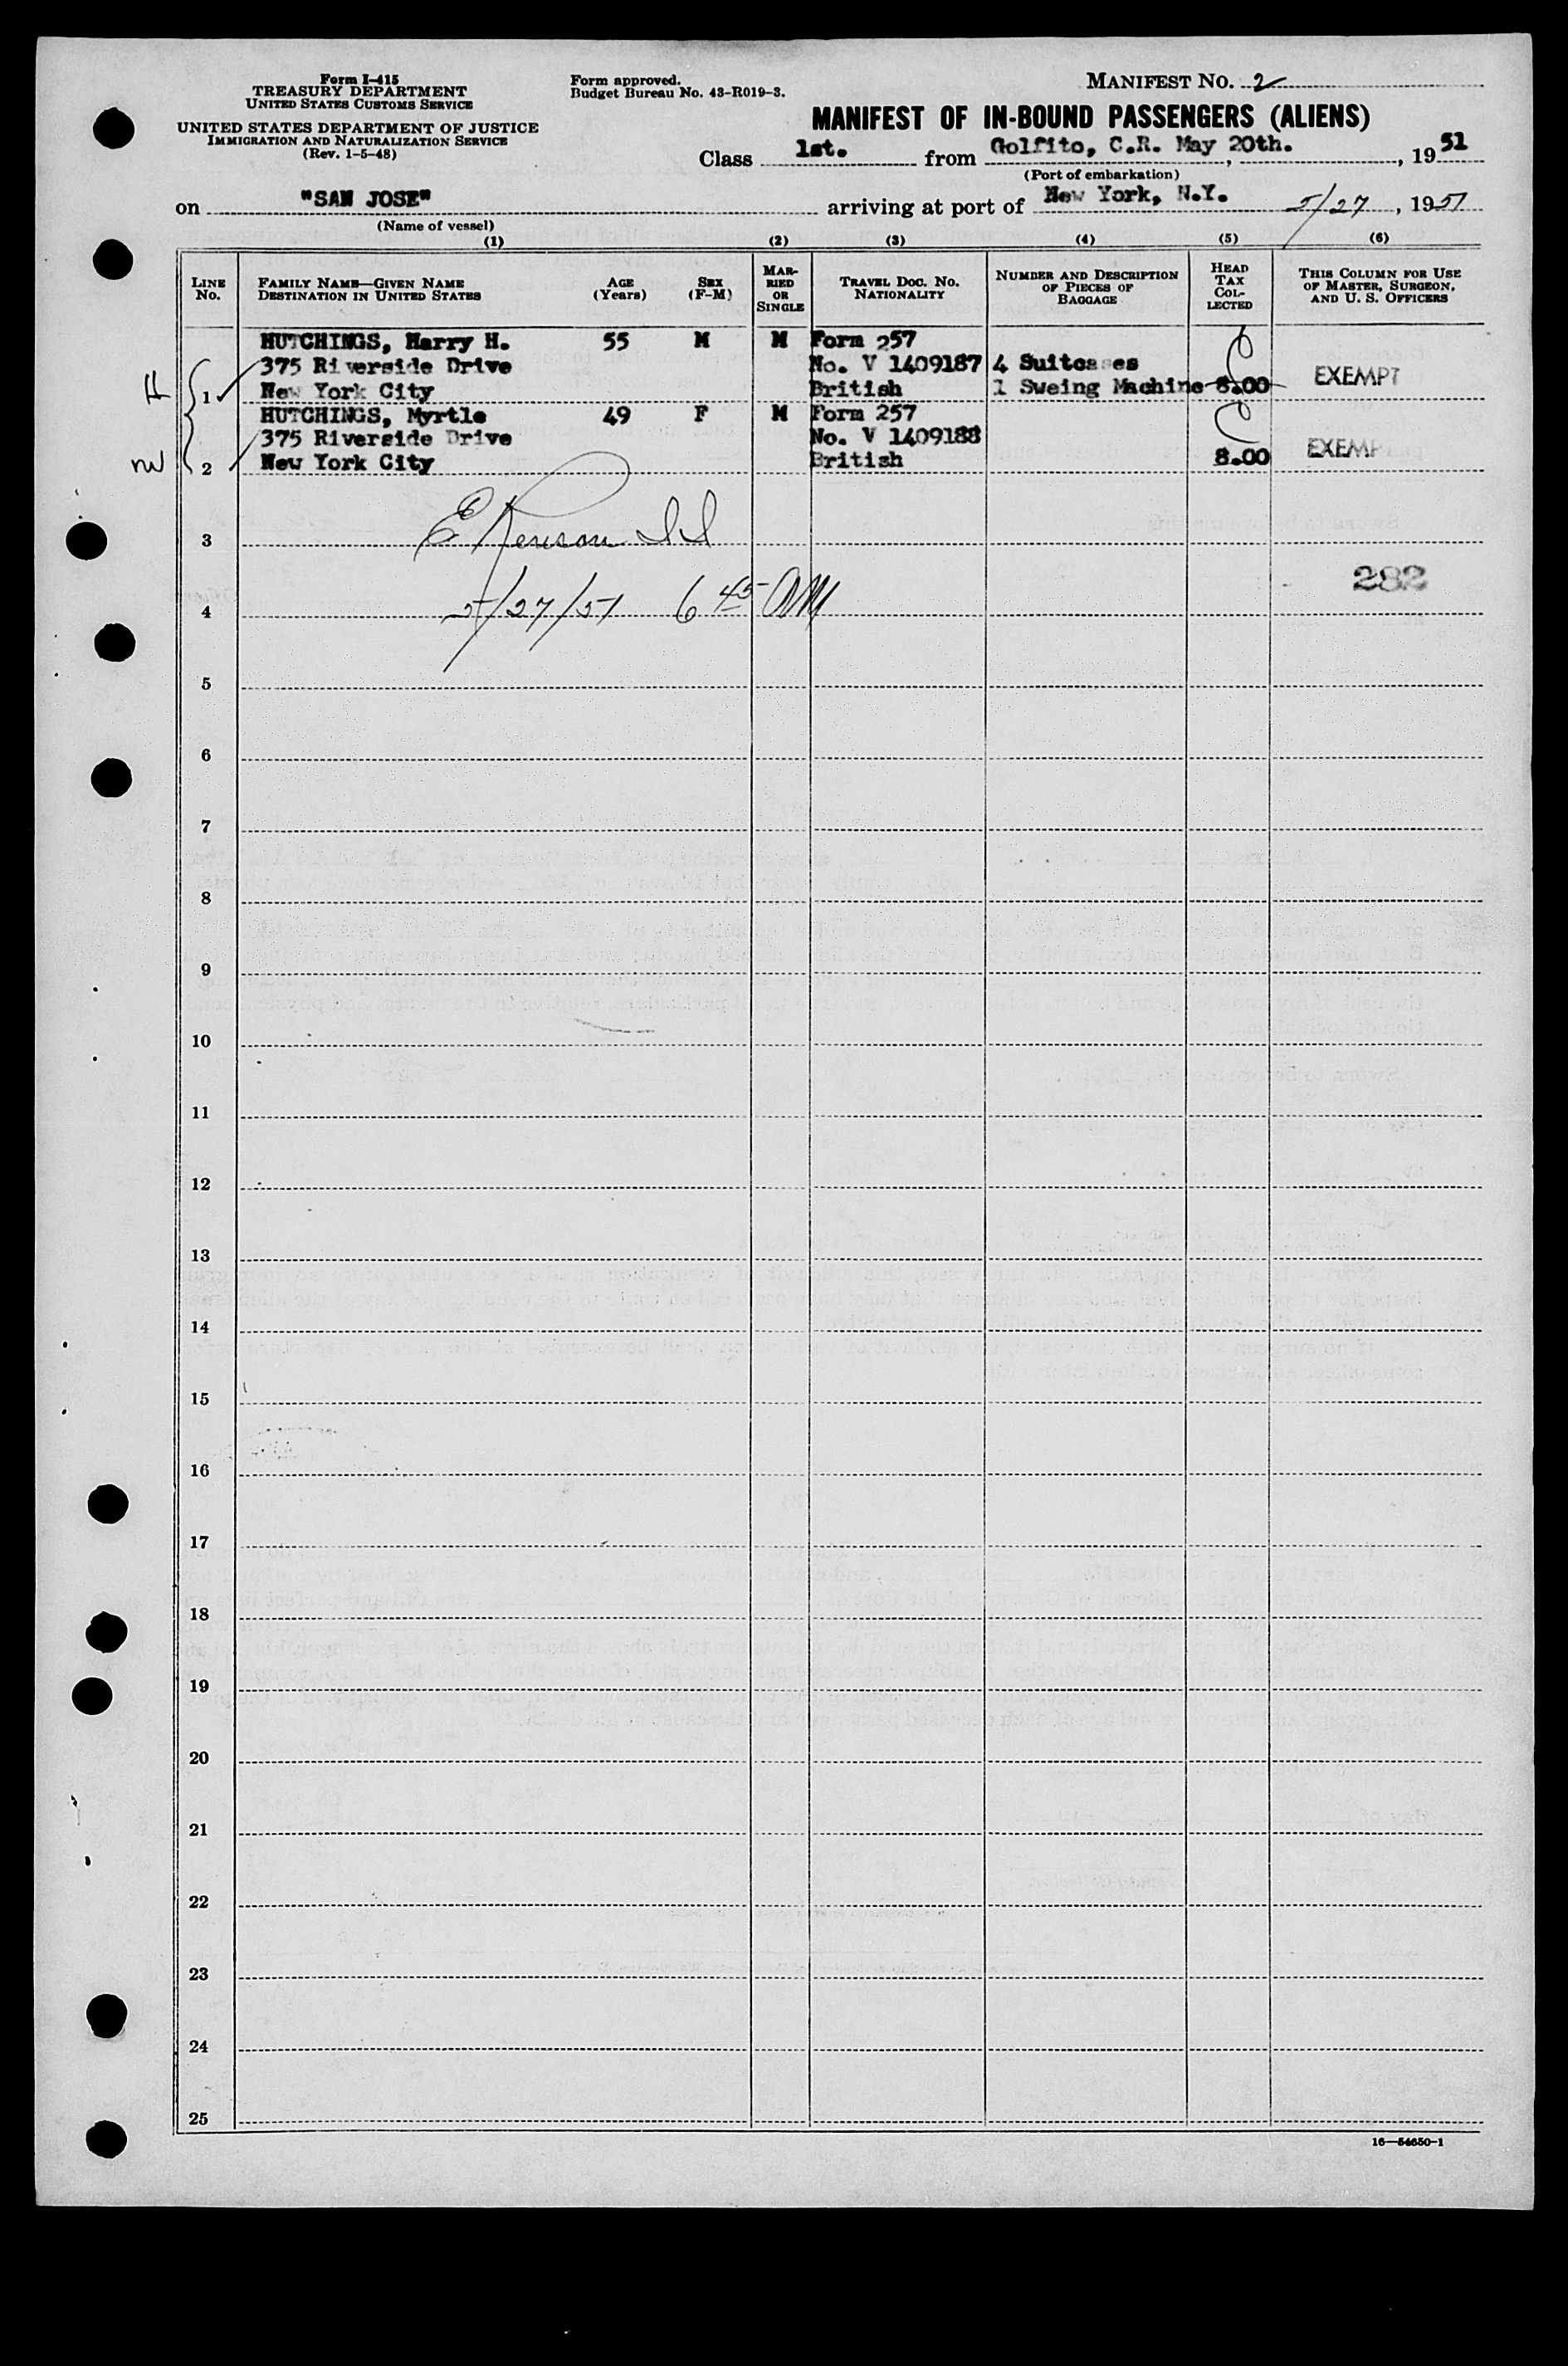 Form I-415
TREASURY DEPARTMENT
UNITED STATES CUSTOMS SERVICE
UNITED STATES DEPARTMENT OF JUSTICE
IMMIGRATION AND NATURALIZATION SERVICE
(Rev. 1-5-48)
Form approved.
Budget Bureau No. 43-R019-3.
MANIFEST NO. 2
MANIFEST OF IN-BOUND PASSENGERS (ALIENS)
Class 1st. from Golfito, C.R. May 20th. , , 19 51
(Port of embarkation)
on "SAN JOSE" arriving at port of New York, N.Y. 5/27 , 1951
(Name of vessel)
(1) (2) (3) (4) (5) (6)
LINE No.
FAMILY NAME—GIVEN NAME
DESTINATION IN UNITED STATES
AGE (Years)
SEX (F-M)
MAR-
RIED
OR
SINGLE
TRAVEL DOC. NO.
NATIONALITY
NUMBER AND DESCRIPTION
OF PIECES OF
BAGGAGE
HEAD
TAX
COL-
LECTED
THIS COLUMN FOR USE
OF MASTER, SURGEON,
AND U. S. OFFICERS
HUTCHINGS, Harry H. 55 M M Form 257
375 Riverside Drive No. V 1409187 4 Suitcases
H 1 New York City British 1 Sweing Machine 8.00 EXEMPT
HUTCHINGS, Myrtle 49 F M Form 257
375 Riverside Drive No. V 1409188
2 New York City British 8.00 EXEMP
3
282
4 5/27/51 6 45 AM
5
6
7
8
9
10
11
12
13
14
15
16
17
18
19
20
21
22
23
24
25
16—54650-1